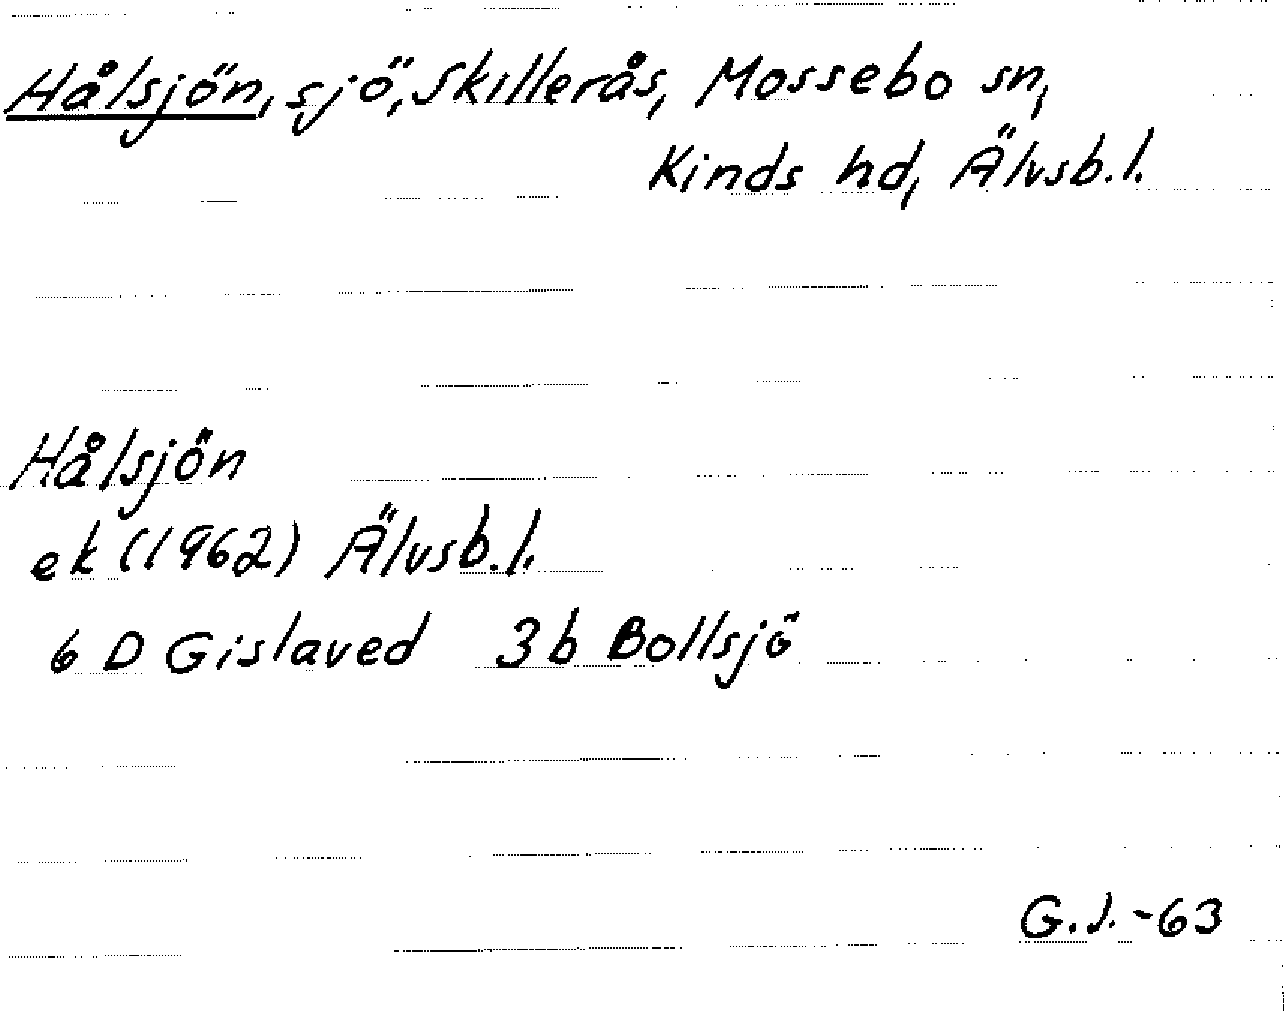 Hålsjön, sjö, Skillerås, Mossebo sn,
Kinds hd, Älvsb.l.
Hålsjön
ek (1962) Älvsb.l.
6 D Gislaved 3b Bollsjö
G.J.-63